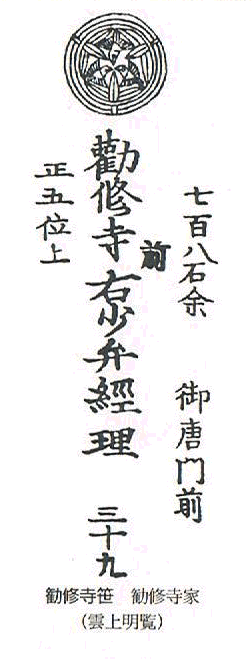 七百八石余 御唐門前
勧修寺前右少弁經理 三十九
正五位上
勧修寺笹 勧修寺家
(雲上明覧)